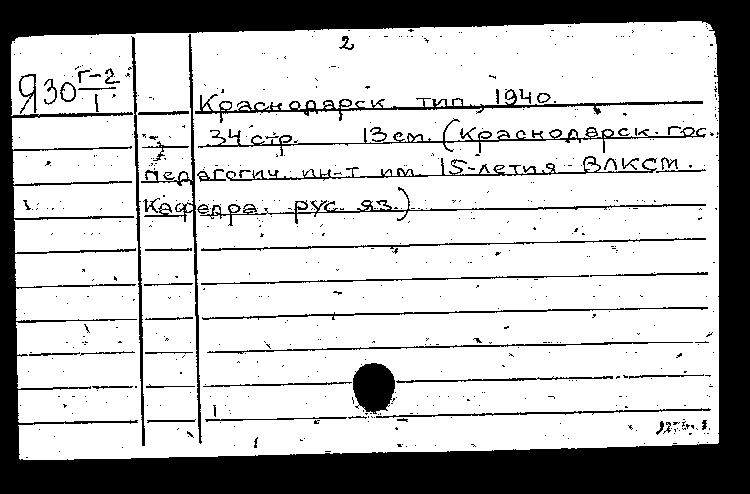 2
Я30 Г-2/1
Краснодарск. тип., 1940.
34 стр. 13 см. (Краснодарск. гос.
педагогич. ин-т им. 15-летия ВЛКСМ.
Кафедра рус. яз.)